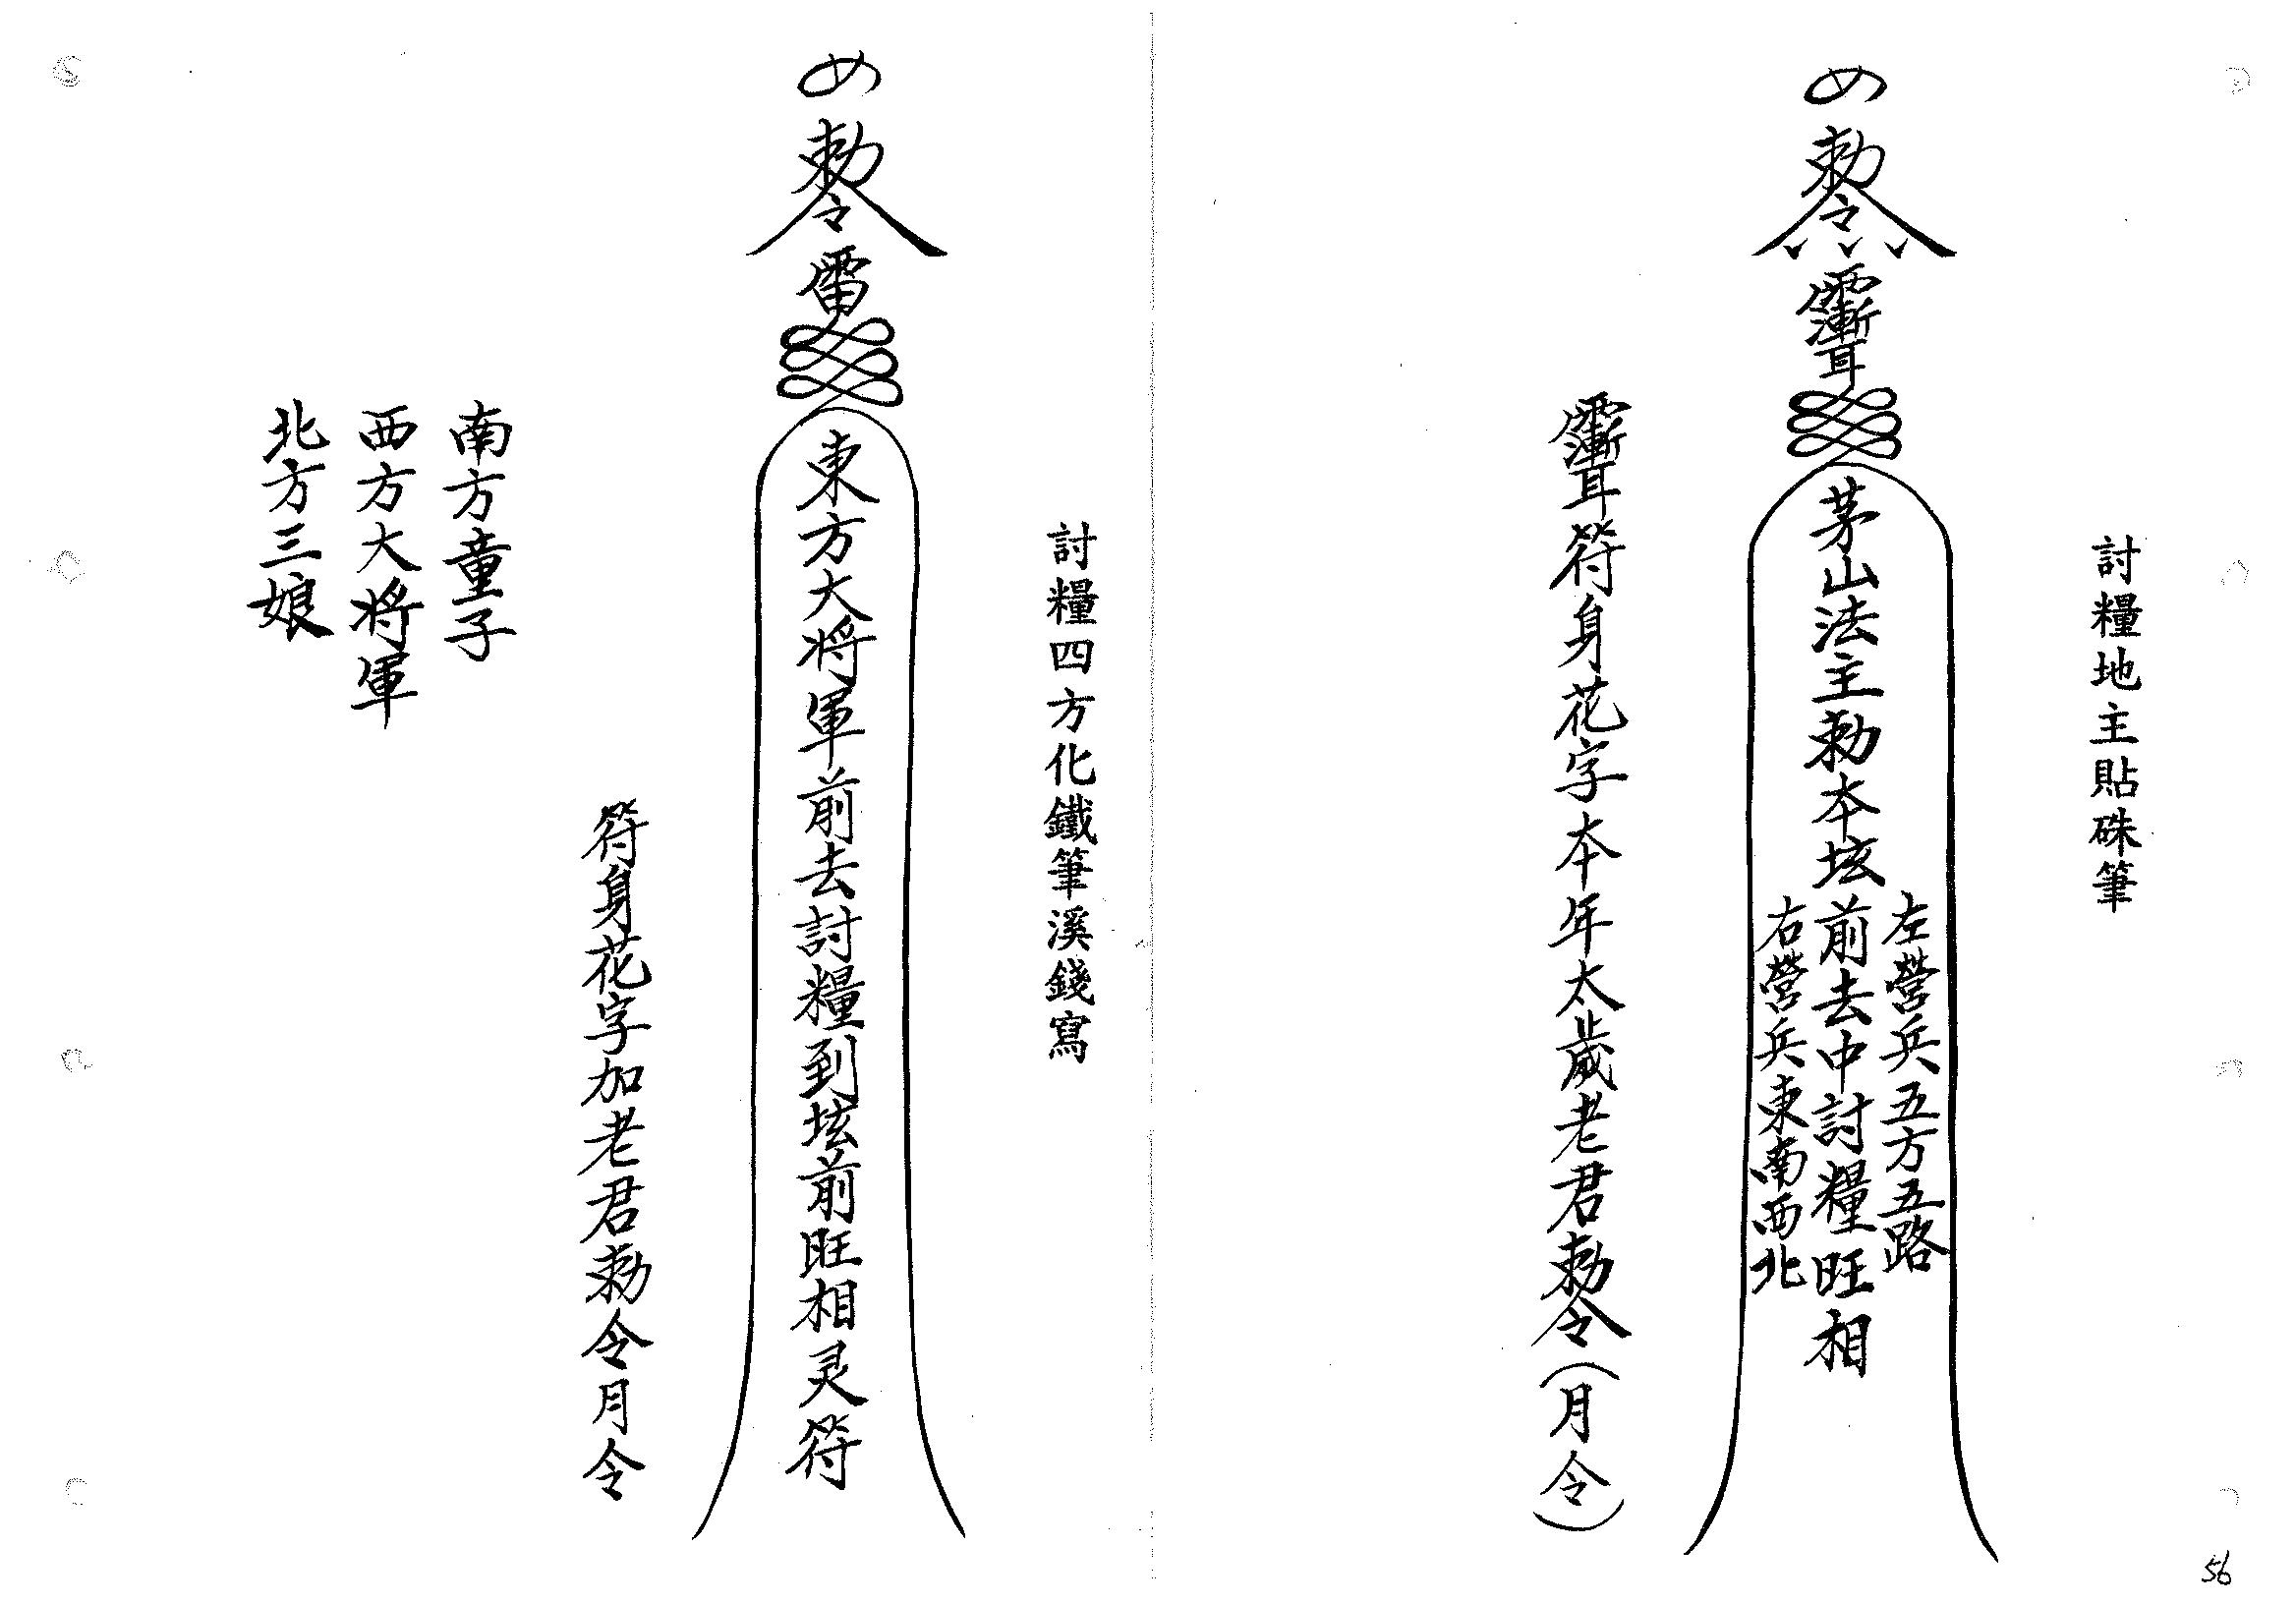 討糧地主貼硃筆
勅令
茅山法主勅本坛前去中討糧旺相
左營兵五方五路
右營兵東南西北
符身花字本年太歲老君勅令(月令)
討糧四方化鐵筆溪錢寫
勅令
東方大將軍前去討糧到坛前旺相灵符
符身花字加老君勅令月令
南方童子
西方大將軍
北方三娘
56